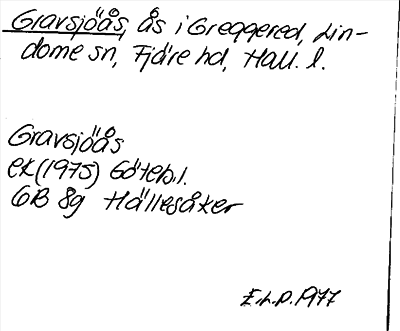 Gravsjöås, ås i Greggered, Lin-
dome sn, Fjäre hd, Hall. l.
Gravsjöås
ek (1975) Göteb.l.
GB 8g Hällesåker
E.L.P. 1977